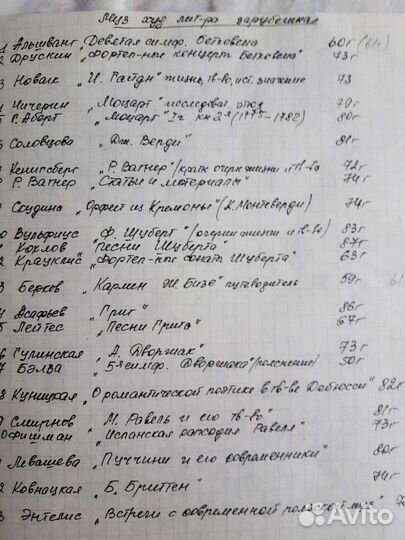 Муз худ лит-ра зарубежная
1 Альшванг „Девятая симф. Бетховена 60г (61г)
2 Друскин „Фортеп-ные концерты Бетховена" 73г
3 Новак „И. Гайдн" жизнь, тв-во, ист. значение 73
4 Чичерин „Моцарт" исследоват. этюд 70г
5 Г. Аберт „Моцарт" Iч кн 2я (1775-1782) 80г
6 Соловцова „Дж. Верди" 81г
Кенигсберг „Р. Вагнер" /кратк очерк жизни и тв-ва 72г
Р. Вагнер „Статьи и материалы" 74г
Скудина „Орфей из Кремоны" (К. Монтеверди) 74г
0 Вульфиус „Ф. Шуберт" /очерки жизни и тв-ва) 83г
Хохлов „Песни Шуберта" 87г
2 Крауклис „Фортеп-ные сонаты Шуберта" 63г
3 Берков „Кармен" Ж. Бизе" путеводитель 59г
4 Асафьев „Григ" 86г
5 Лейтес „Песни Грига" 67г
6 Гулинская „А. Дворжак" 73г
7 Бэлза „5-я симф. Дворжака" /пояснение) 50г
8 Куницкая „О романтической поэтике в тв-ве Дебюсси" 82г
9 Смирнов „М. Равель и его тв-во" 81г
0 Фишман „Испанская рапсодия Равеля" 73г
Левашева „Пуччини и его современники" 80г
2 Ковнацкая „Б. Бриттен" 74г
3 Энтелис „Встречи с современной
Avito